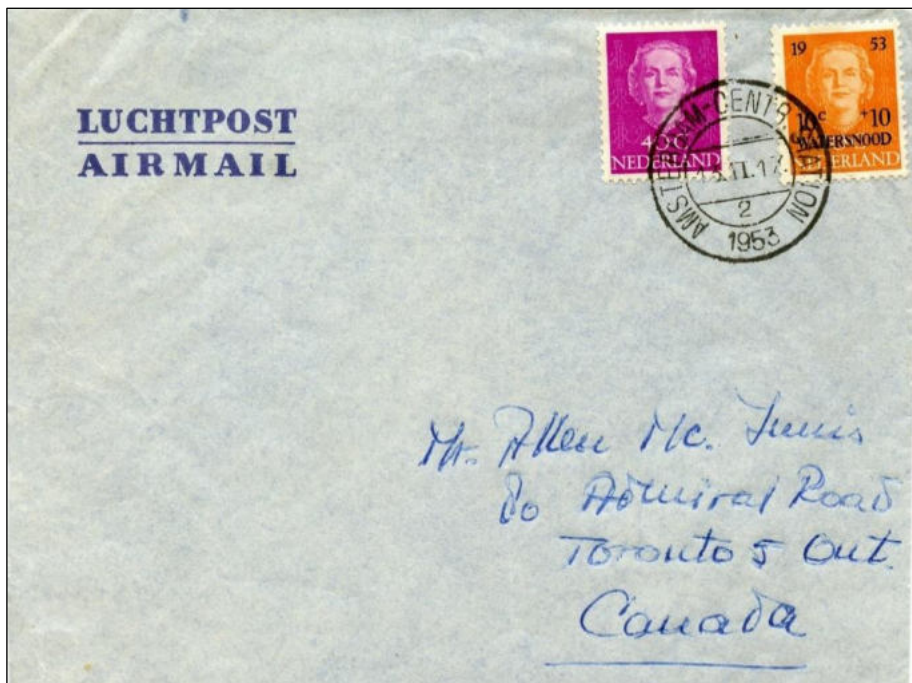 LUCHTPOST
AIRMAIL
40 C
NEDERLAND
19 53
10c +10
WATERSNOOD
NEDERLAND
AMSTERDAM-CENTRAAL STATION
2
1953
Mr. Allen Mc. Innis
80 Admiral Road
Toronto 5 Ont.
Canada